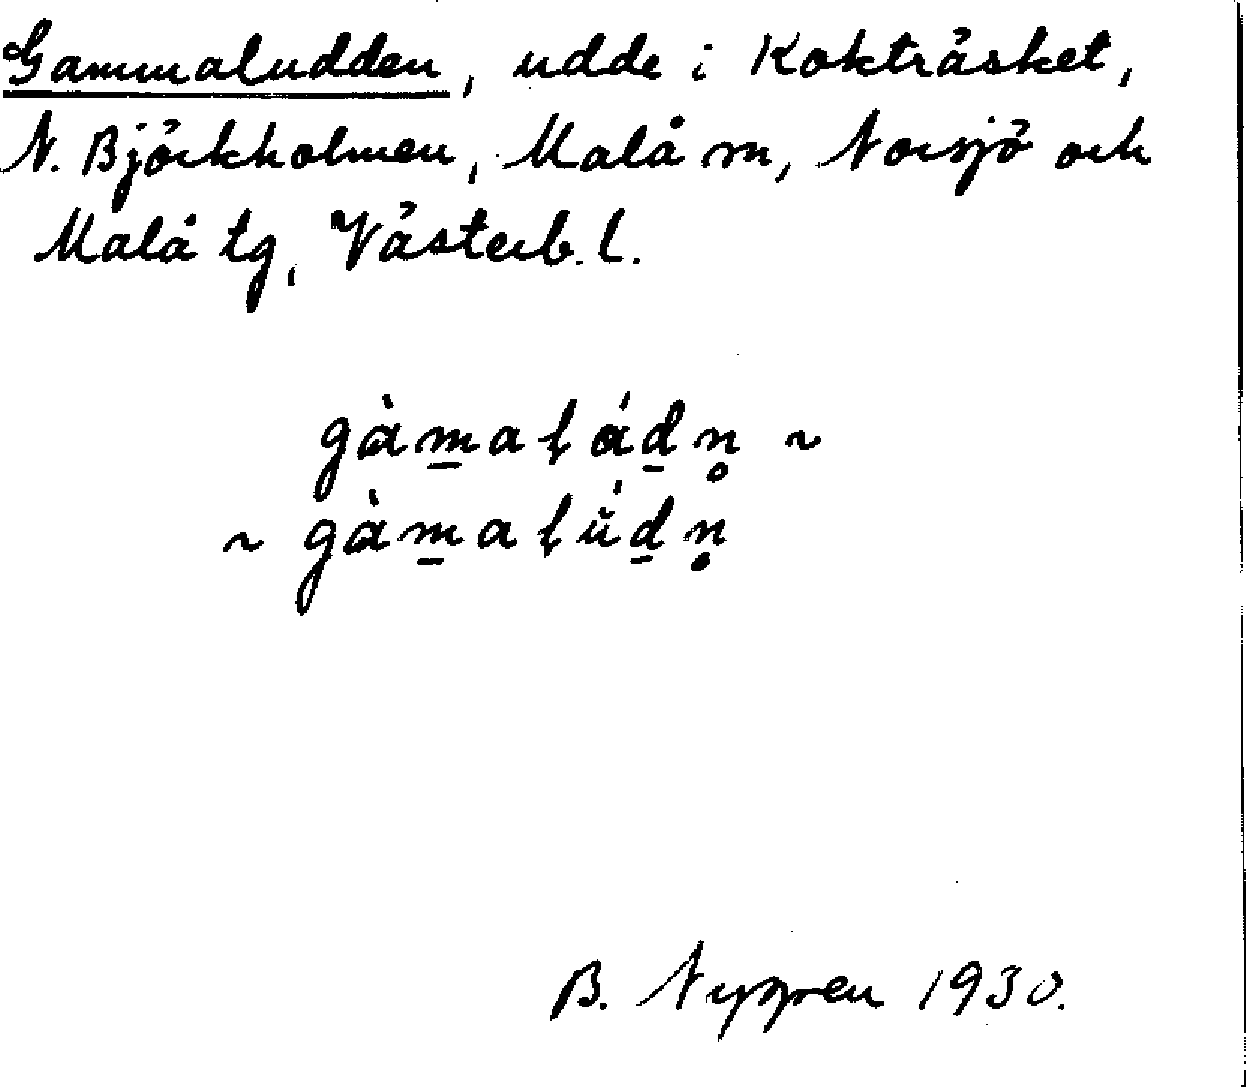 Gammaludden, udde i Kokträsket,
N. Björkholmen, Malå sn, Norsjö och
Malå tg, Västerb. l.
gàm̲aɭád̲n̥ ~
~ gàm̲aɭúd̲n̥
B. Nygren 1930.